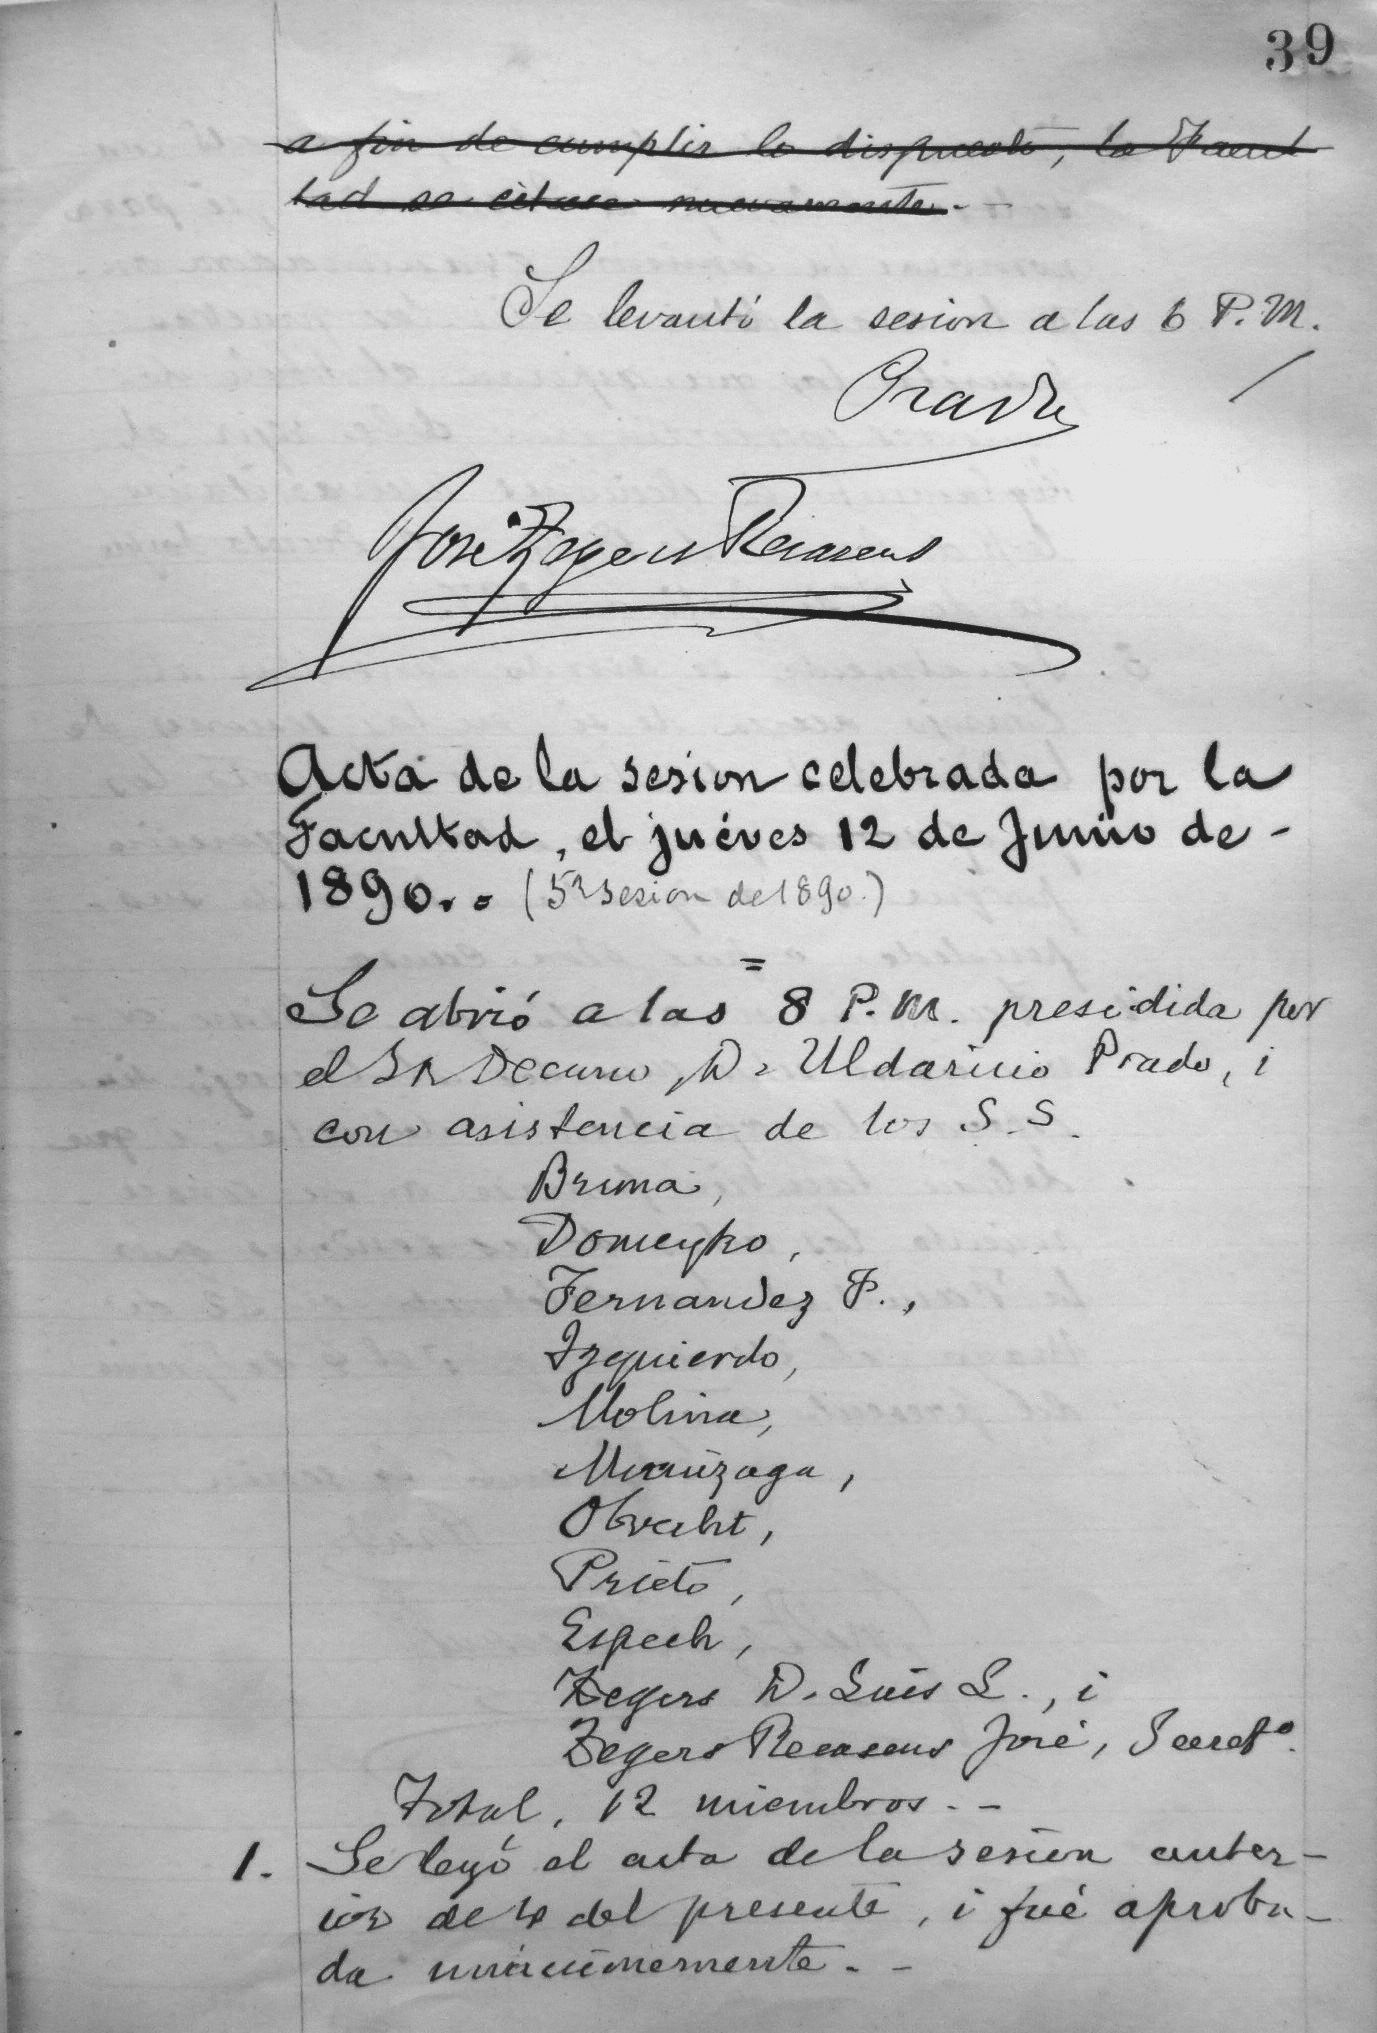 39
a fin de cumplir lo dispuesto, la Facul
tad se citase nuevamente. -
Se levantó la sesion a las 6 P.M.
Prado
José Zegers Recasens
Acta de la sesion celebrada por la
Facultad, el juéves 12 de Junio de -
1890. = (5ª sesion de 1890.)
=
Se abrió a las 8 P.M. presidida por
el Sr Decano, D. Uldaricio Prado, i
con asistencia de los S.S.
Bruna,
Domeyko,
Fernandez P.,
Izquierdo,
Molina,
Munizaga,
Obrecht,
Prieto,
Espech,
Zegers D. Luis L., i
Zegers Recasens José, Secretº.
Total, 12 miembros. -
1. Se leyó el acta de la sesion anter-
ior de 4 del presente, i fué aproba-
da unánimemente. -